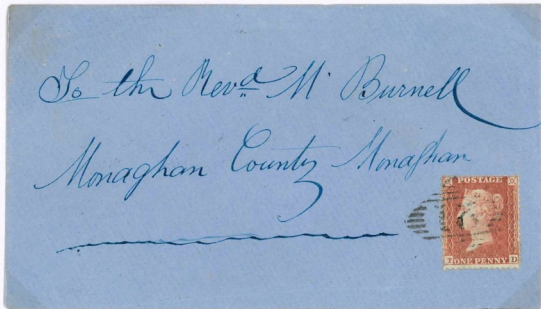 To the Revd Mr Burnell
Monaghan County Monaghan
POSTAGE
ONE PENNY
T D